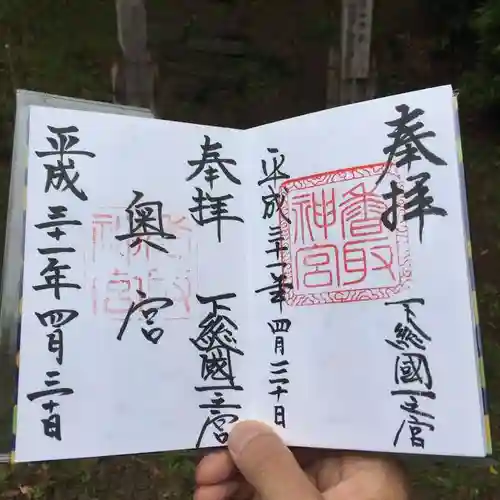 奉拝
下総國一之宮
香取神宮
平成三十一年四月三十日
奉拝
下総國一之宮
奥宮
平成三十一年四月三十日